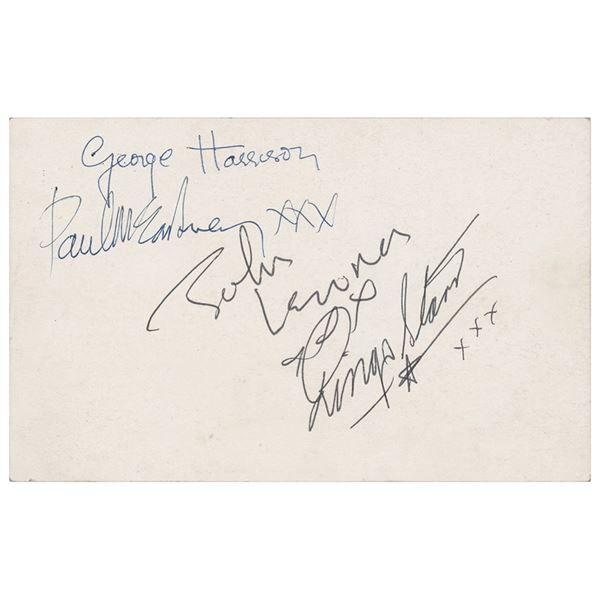 George Harrison
Paul McCartney XXX
John Lennon X
Ringo Starr xxx